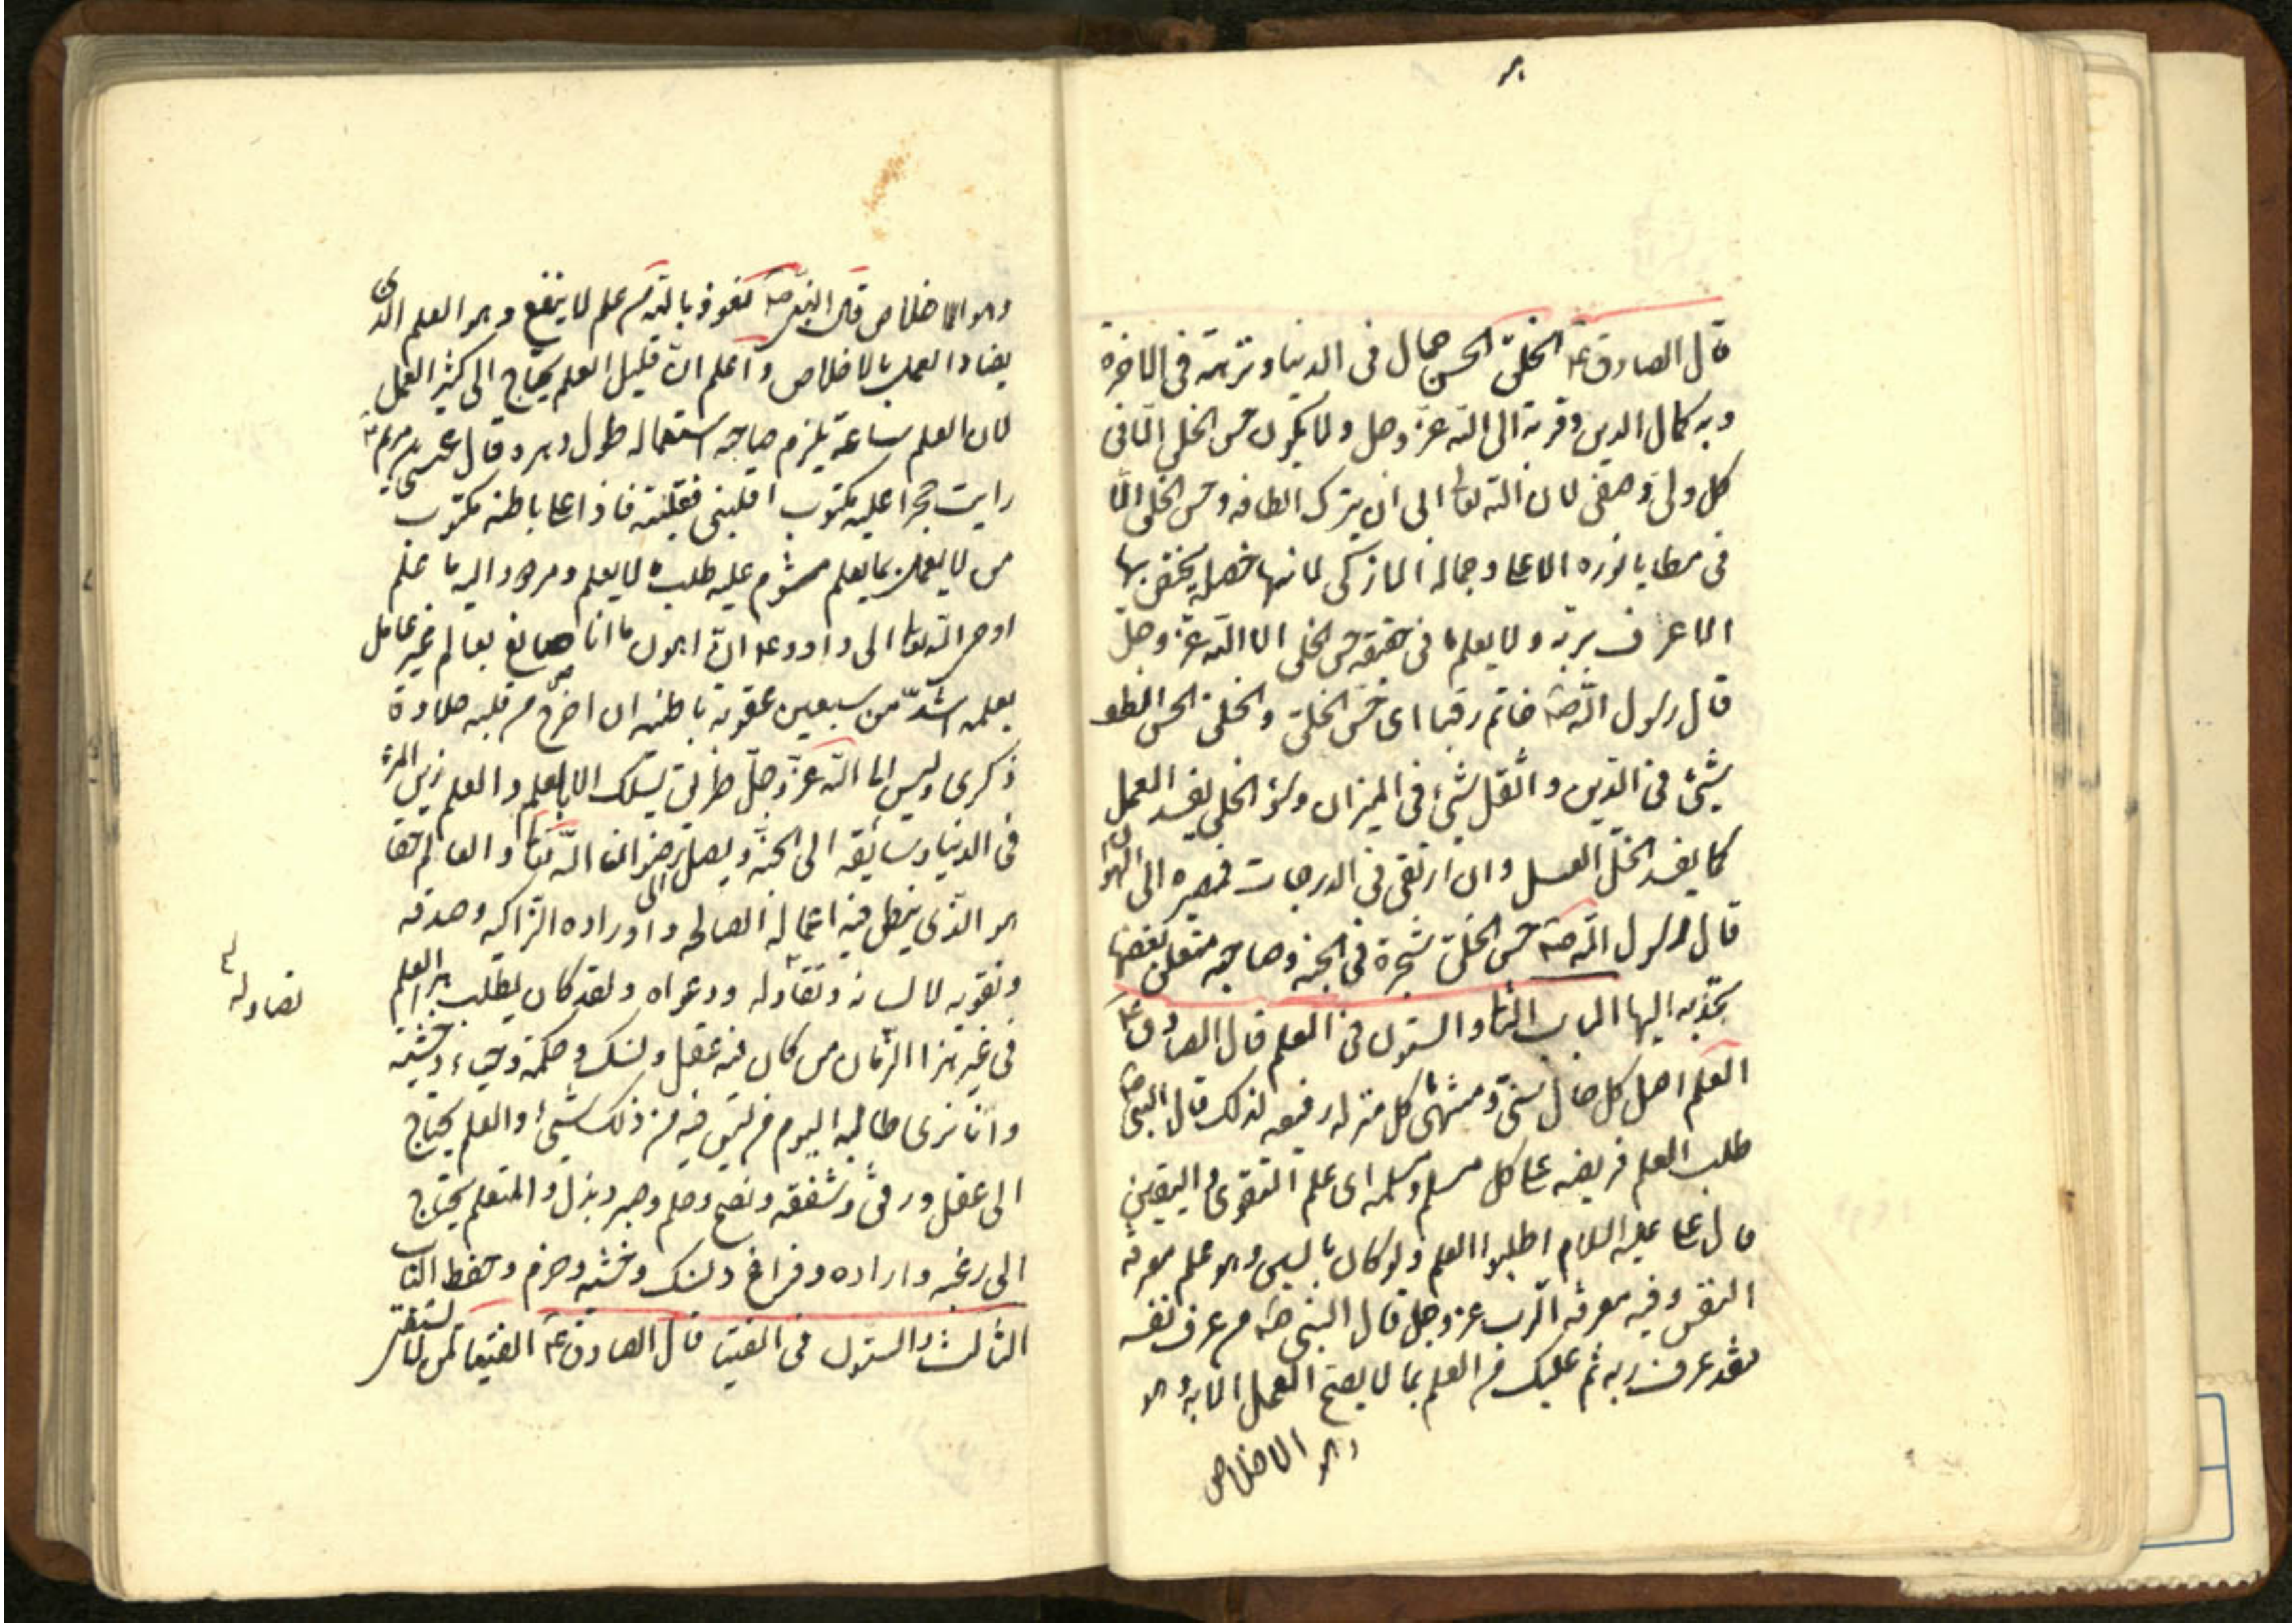 قال الصادق ع الخلق الحسن جمال فى الدنيا و نزهة فى الاخرة
و به كمال الدين و قربة الى الله عز و جل و لا يكون حسن الخلق الا فى
كل ولى و صفى لان الله تعالى ابى ان يترك الطافه و حسن الخلق الا
فى مطايا نوره الاعلى و جماله الازكى لانها خصلة يختص بها
الاعرف بربه و لا يعلم ما فى حقيقة حسن الخلق الا الله عز و جل
قال رسول الله ص خاتم زماننا الى حسن الخلق و الخلق الحسن الطف
شىء فى الدين و اثقل شىء فى الميزان و سوء الخلق يفسد العمل
كما يفسد الخل العسل و ان ارتقى فى الدرجات فمصيره الى الهوان
قال رسول الله ص حسن الخلق شجرة فى الجنة و صاحبه متعلق بغصنها
يجذبه اليها الباب الثانى و الستون فى العلم قال الصادق ع
العلم اصل كل حال سنى و منتهى كل منزلة رفيعة لذلك قال النبى ص
طلب العلم فريضة على كل مسلم و مسلمة اى علم التقوى و اليقين
قال على عليه السلام اطلبوا العلم و لو كان بالصين و هو علم معرفة
النفس و فيه معرفة الرب عز و جل قال النبى ص من عرف نفسه
فقد عرف ربه ثم عليك من العلم بما لا يصح العمل الا به و هو
و هو الاخلاص
و هو الاخلاص قال النبى ص نعوذ بالله من علم لا ينفع و هو العلم الذى
يضاد العمل بالاخلاص و اعلم ان قليل العلم يحتاج الى كثير العمل
لان العلم ساعة يلزم صاحبه استعماله طول دهره و قال عيسى بن مريم ع
رايت حجرا عليه مكتوب اقلبنى فقلبته فاذا على باطنه مكتوب
من لا يعمل بما يعلم مشوم عليه طلب ما لا يعلم و مردود اليه ما علم
اوحى الله تعالى الى داود ع ان اهون ما انا صانع بعالم غير عامل
بعلمه اشد من سبعين عقوبة باطنه ان اخرج من قلبه حلاوة
ذكرى و ليس الى الله عز و جل طريق يسلك الا بالعلم و العلم زين المرء
فى الدنيا و سائقه الى الجنة و به يصل الى رضوان الله تعالى و العالم حقا
هو الذى ينطق فيه اعماله الصالحة و اوراده الزاكية و صدقه
و تقويه لا لسانه و تصاوله و دعواه و لقد كان يطلب هذا العلم
تصاوله
فى غير هذا الزمان من كان فيه عقل و نسك و حكمة و حياء و خشية
و انا نرى طالبه اليوم من ليس فيه من ذلك شىء و العلم يحتاج
الى عقل و رفق و شفقة و نصح و حلم و صبر و بذل و المتعلم يحتاج
الى رغبة و ارادة و فراغ و نسك و خشية و حزم و حفظ الباب
الثالث و الستون فى الفتيا قال الصادق ع الفتيا لمن لا يستفتى